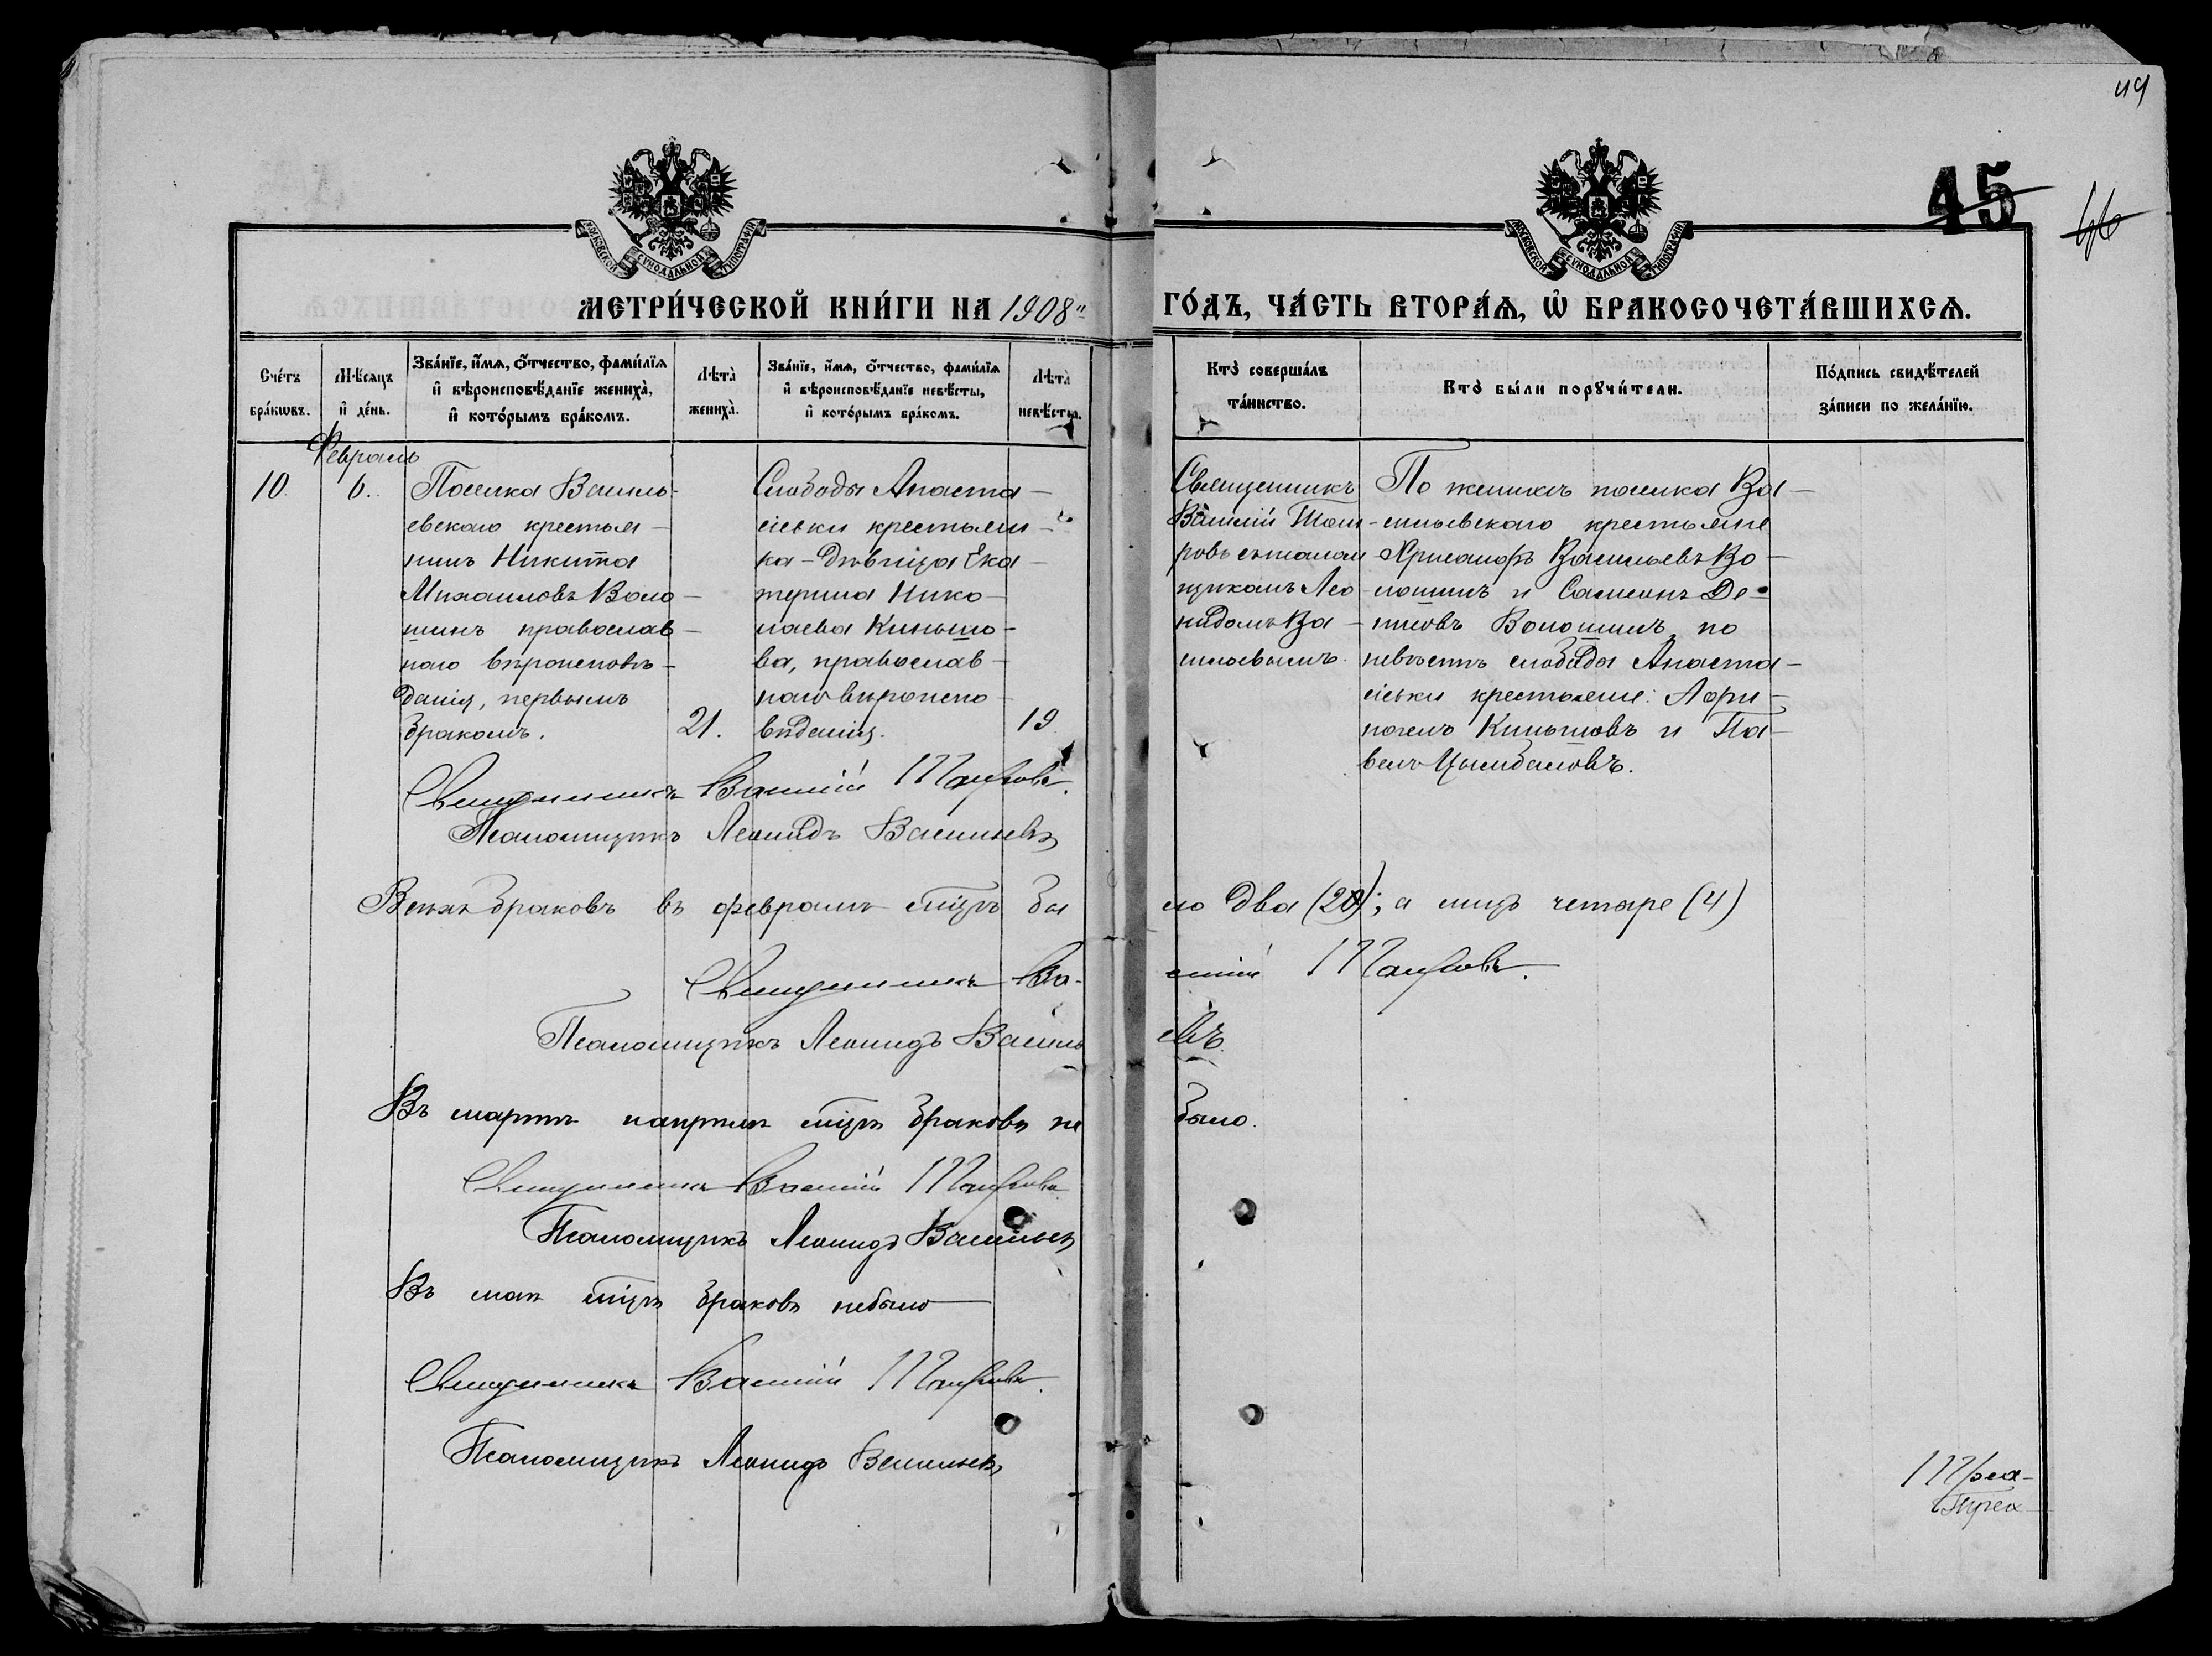 49
45
46
МОСКОВСКОЙ СѴНОДАЛЬНОЙ ТИПОГРАФІИ
МОСКОВСКОЙ СѴНОДАЛЬНОЙ ТИПОГРАФІИ
МЕТРИ́ЧЕСКОЙ КНИ́ГИ НА 1908
ГО́ДЪ, ЧА́СТЬ ВТОРА́Я, Ѡ БРАКОСОЧЕТА́ВШИХСЯ.
Сче́тъ бра́кѡвъ.
Мѣ́сяцъ и де́нь.
Зва́нїе, и́мя, о́тчество, фами́лїя и вѣроисповѣ́данїе жениха̀, и кото́рымъ бра́комъ.
Лѣта̀ жениха̀.
Зва́нїе, и́мя, о́тчество, фами́лїя и вѣроисповѣ́данїе невѣ́сты, и кото́рымъ бра́комъ.
Лѣта̀ невѣ́сты.
Кто̀ соверша́лъ та́инство.
Кто̀ бы́ли порꙋчи́тели.
По́дпись свидѣ́телей за́писи по жела́нїю.
Февраль
10.
6.
Поселка Василь-
евскаго крестья-
нинъ Никита
Михаиловъ Воло-
шинъ православ-
наго вѣроисповѣ-
данія, первымъ
бракомъ.
21.
Слободы Анаста-
сіевки крестьян-
ка-дѣвица Ека-
терина Нико-
лаева Киньшо-
ва, православ-
наго вѣроиспо-
вѣданія.
19
Священникъ
Василій
ровъ съ псалом
щикомъ Лео-
нидомъ Ва-
сильевымъ.
По женихѣ поселка Ва-
сильевскаго крестьяне
Хрисанфъ Васильевъ Во-
лошинъ и Самсонъ Де-
Волошинъ, по
невѣстѣ слободы Анаста-
сіевки крестьяне:
Киньшовъ и Па-
велъ Цымбаловъ.
Священникъ Василій
Псаломщикъ Леонидъ Васильевъ
Всѣхъ браковъ въ февралѣ мѣсцѣ бы
ло два (2); а лицъ четыре (4)
Священникъ Ва-
силій
Псаломщикъ Леонидъ Василь
евъ.
Въ мартѣ и апрѣлѣ мѣсцѣ браковъ не
было.
Священникъ Василій
Псаломщикъ Леонидъ Васильевъ
Въ маѣ мѣсцѣ браковъ небыло
Священникъ Василій
Псаломщикъ Леонидъ Васильевъ